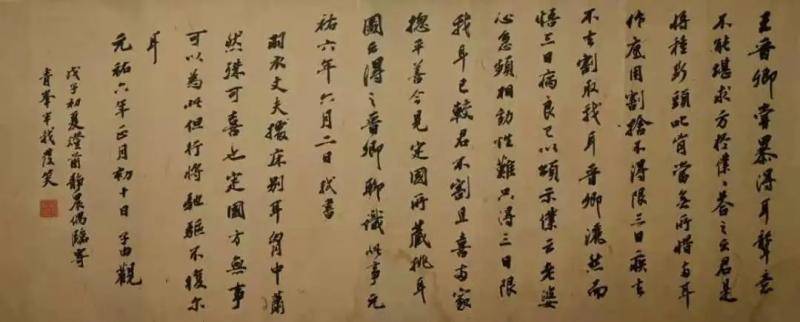 王晉卿嘗暴得耳聾意
不能堪求方於僕僕答之云君是
將種斷頭穴胷當無所惜兩耳
作底用割捨不得限三日疾去
不去割取我耳晉卿灑然而
悟三日病良已以頌示僕云老婆
心急頻相勸性難只得三日限
我耳已較君不割且喜兩家
摠平善今見定國所藏挑耳
圖云得之晉卿聊識此事元
祐六年六月二日軾書
羽衣丈夫據床剔耳胷中蕭
然殊可喜也定國方無事
可以為此但行將馳驅不復爾
耳
元祐六年正月初十日子由觀
戊子初夏燈前靜居偶臨